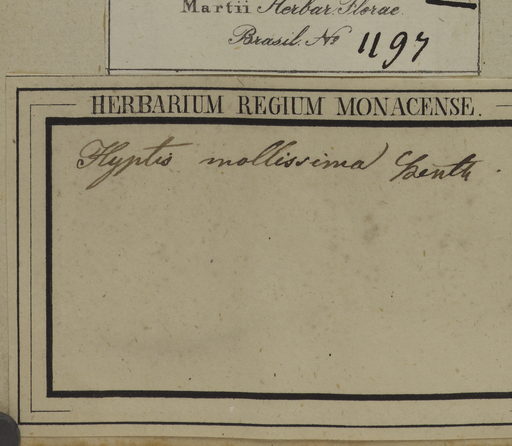 Martii Herbar. Florae
Brasil. No 1197
HERBARIUM REGIUM MONACENSE.
Hyptis mollissima Benth.